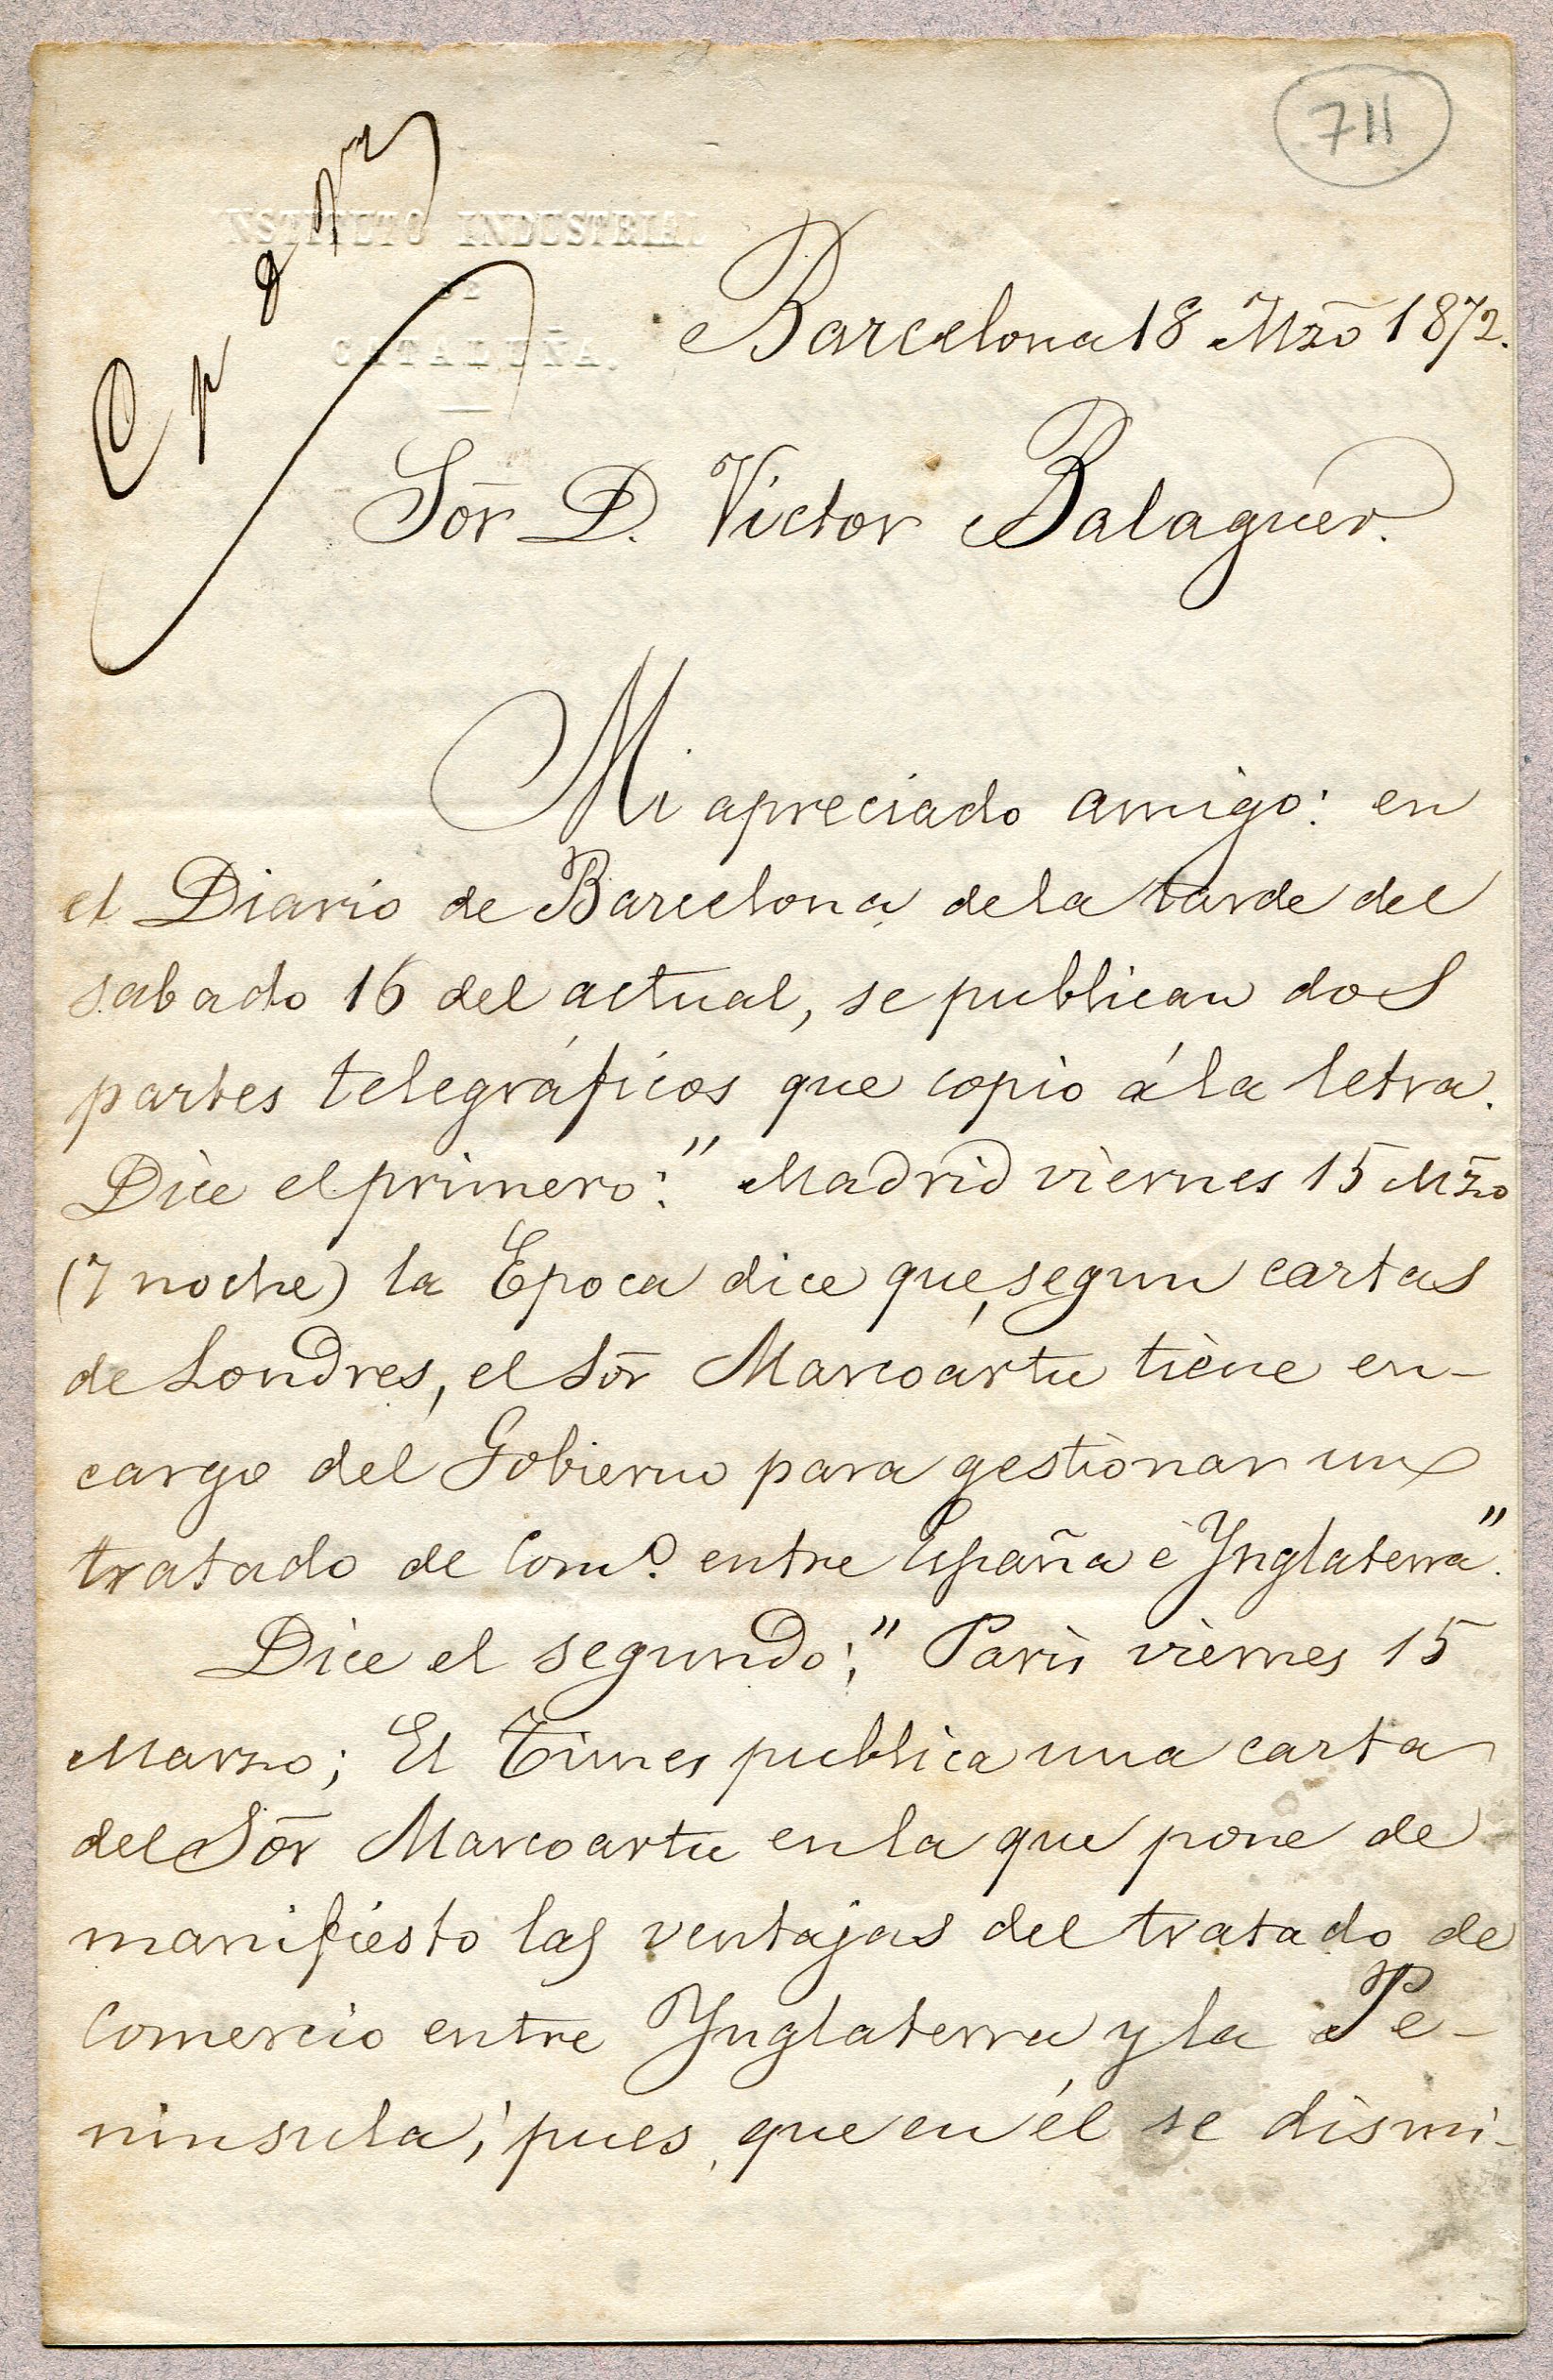 711
INSTITUTO INDUSTRIAL
DE
CATALUÑA.
Barcelona 18 Mzo 1872.
Sor D. Victor Balaguer.
Mi apreciado amigo: en
el Diario de Barcelona de la tarde del
sabado 16 del actual, se publican dos
partes telegráficos que copio á la letra.
Dice el primero: "Madrid viernes 15 Mzo
(7 noche) la Epoca dice que, segun cartas
de Londres, el Sor Marcoartu tiene en-
cargo del Gobierno para gestionar un
tratado de Com.o entre España é Ynglaterra".
Dice el segundo; "Paris viernes 15
Marzo; El Times publica una carta
del Sor Marcoartu en la que pone de
manifiesto las ventajas del tratado de
Comercio entre Ynglaterra y la Pe-
ninsula; pues, que en él se dismi-